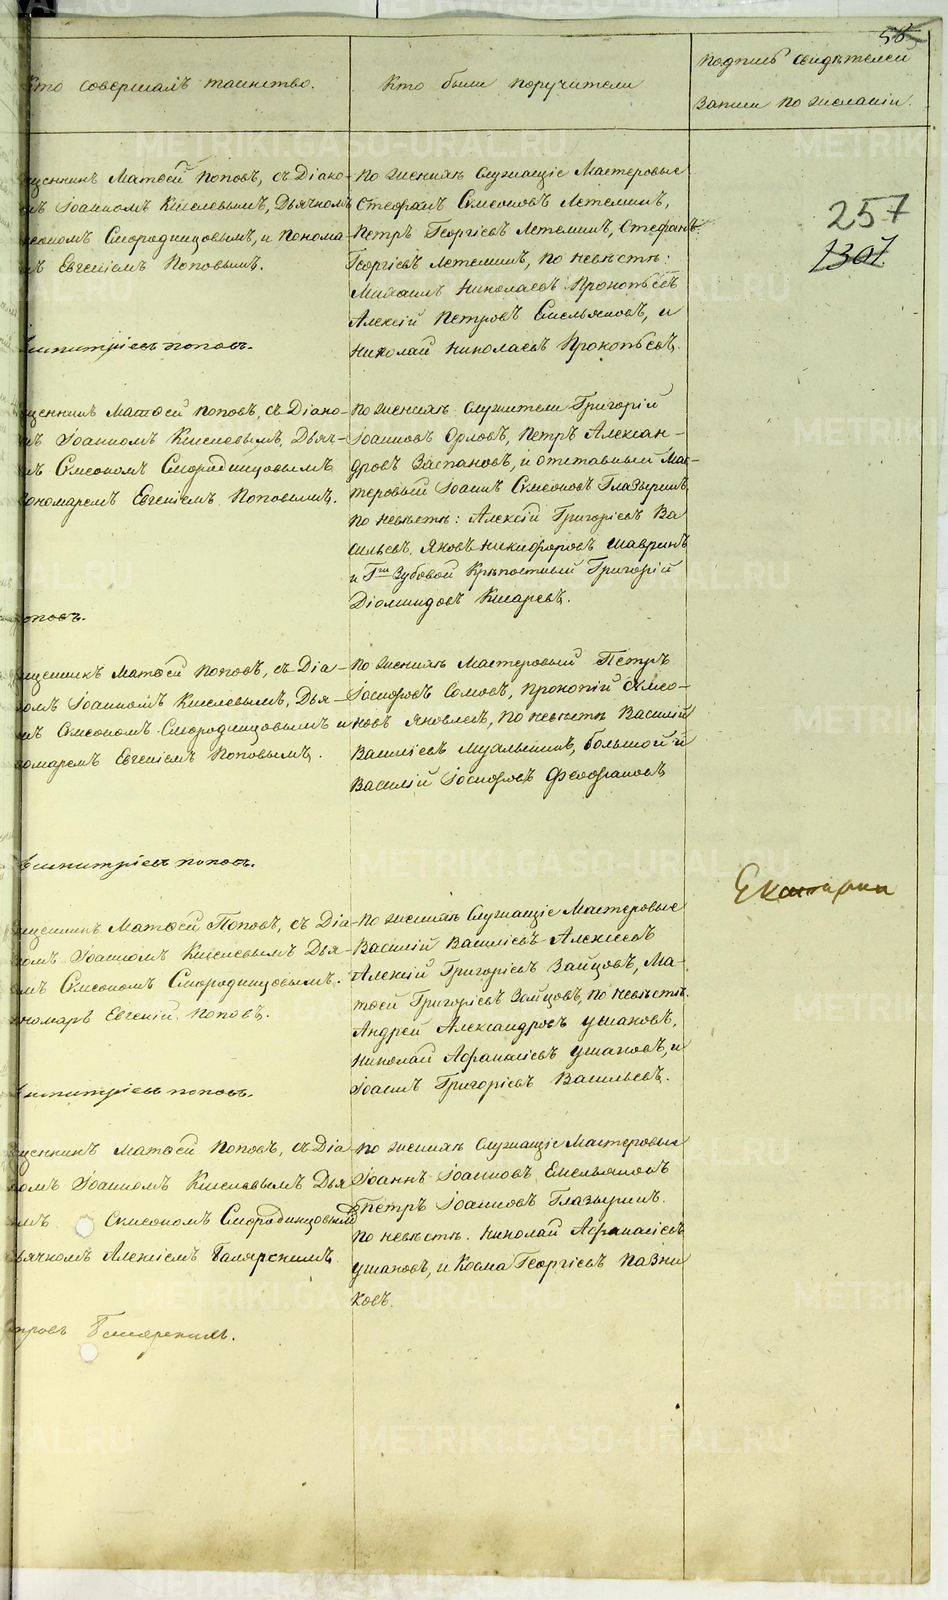 56
Кто совершалъ таинство.
Кто были поручители
Подпись свидѣтелей
записи по желанію.
257
1307
щенникъ Матѳей Поповъ, съ Діако-
мъ Іоанномъ Киселевымъ, Дьячкомъ
Смородинцовымъ, и Понома-
Евгеніемъ Поповымъ.
Димитріевъ Поповъ.
По женихѣ Служащіе Мастеровые
Стефанъ Симеоновъ Летеминъ,
Петръ Георгіевъ Летеминъ, Стефанъ
Георгіевъ Летеминъ, по невѣстѣ:
Михаилъ Николаевъ Прокопьевъ
Алексій Петровъ Емельяновъ, и
Николай Николаевъ Прокопьевъ.
щенникъ Матѳей Поповъ, съ Діако-
мъ Іоанномъ Киселевымъ, Дьяч-
мъ Симеономъ Смородинцовымъ
пономаремъ Евгеніемъ Поповымъ.
Поповъ.
По женихѣ служители Григорій
Іоанновъ Орловъ, Петръ Алексан-
дровъ Заспановъ, и отставный Мас-
теровый Іоаннъ Симеоновъ Глазыринъ
по невѣстѣ: Алексій Григоріевъ Ва
сильевъ, Яковъ Никифоровъ Шавринъ
и Гжи Зубовой Крѣпостный Григорій
Діомидовъ Кисаревъ.
щенникъ Матѳей Поповъ, съ Діа-
омъ Іоанномъ Киселевымъ, Дья-
мъ Симеономъ Смородинцовымъ и
номаремъ Евгеніемъ Поповымъ.
Димитріевъ Поповъ.
По женихѣ Мастеровый Петръ
Іосифовъ Сомовъ, Прокопій Симео-
новъ Яковлевъ, по невѣстѣ Василій
Василіевъ Мугальминъ, большой и
Василій Іосифовъ Феофановъ
щенникъ Матѳей Поповъ, съ Діа
номъ Іоанномъ Киселевымъ Дья-
мъ Симеономъ Смородинцовымъ.
номарь Евгеній Поповъ.
Димитріевъ Поповъ.
По женихѣ Служащіе Мастеровые
Василій Василіевъ Алексеевъ
Алексій Григоріевъ Зайцовъ, Ма-
тѳей Григоріевъ Зайцовъ, по невѣстѣ.
Андрей Александровъ Ушаковъ,
Николай Афанасіевъ Ушаковъ, и
Іоаннъ Григоріевъ Васильевъ.
щенникъ Матѳей Поповъ, съ Діа
номъ Іоанномъ Киселевымъ Дья
мъ Симеономъ Смородинцовымъ
Дьячкомъ Алексіемъ
По женихѣ Служащіе Мастеровые
Іоаннъ Іоанновъ Емельяновъ
Петръ Іоанновъ Глазыринъ.
по невѣстѣ. Николай Афанасіевъ
Ушаковъ, и Косма Георгіевъ Пазни
ковъ.